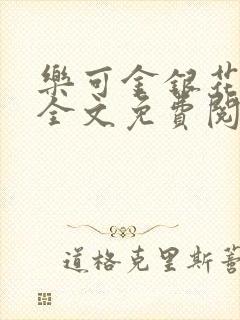 樂可金銀花
全文免費閱
道格克里斯蒂